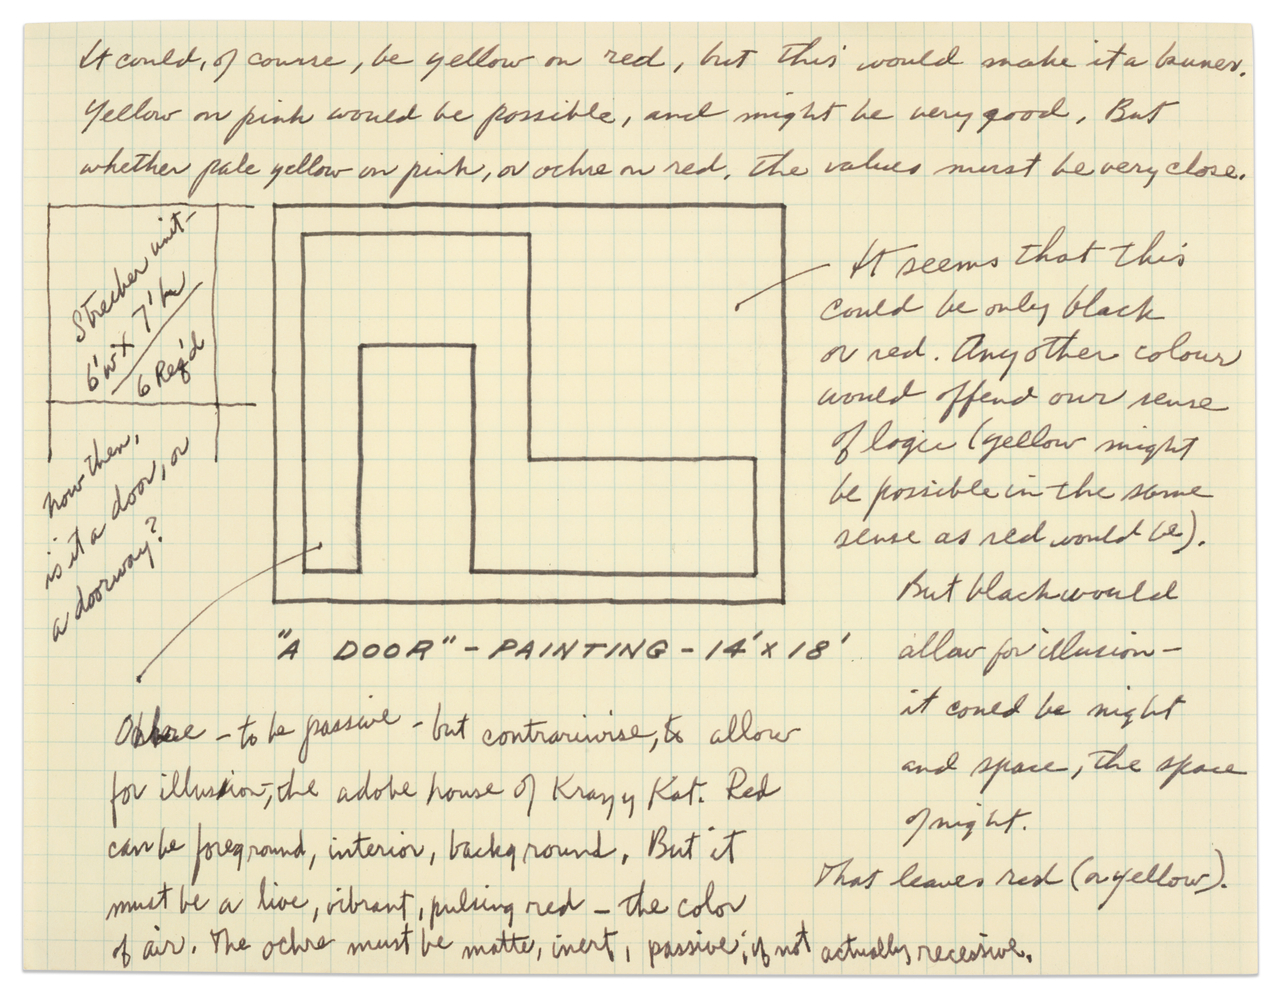 It could, of course, be yellow on red, but this would make it a banner.
Yellow on pink would be possible, and might be very good. But
whether pale yellow on pink, or ochre on red, the values must be very close.
Strecher unit-
6'w x 7'h
6 Req'd
now then,
is it a door, or
a doorway?
It seems that this
could be only black
or red. Any other colour
would offend our sense
of logic (yellow might
be possible in the same
sense as red would be).
But black would
allow for illusion-
it could be night
and space, the space
of night.
That leaves red (or yellow).
"A DOOR" - PAINTING - 14' x 18'
Ochre - to be passive - but contrariwise, to allow
for illusion, the adobe house of Krazy Kat. Red
can be foreground, interior, background. But it
must be a live, vibrant, pulsing red - the color
of air. The ochre must be matte, inert, passive, if not actually recessive.